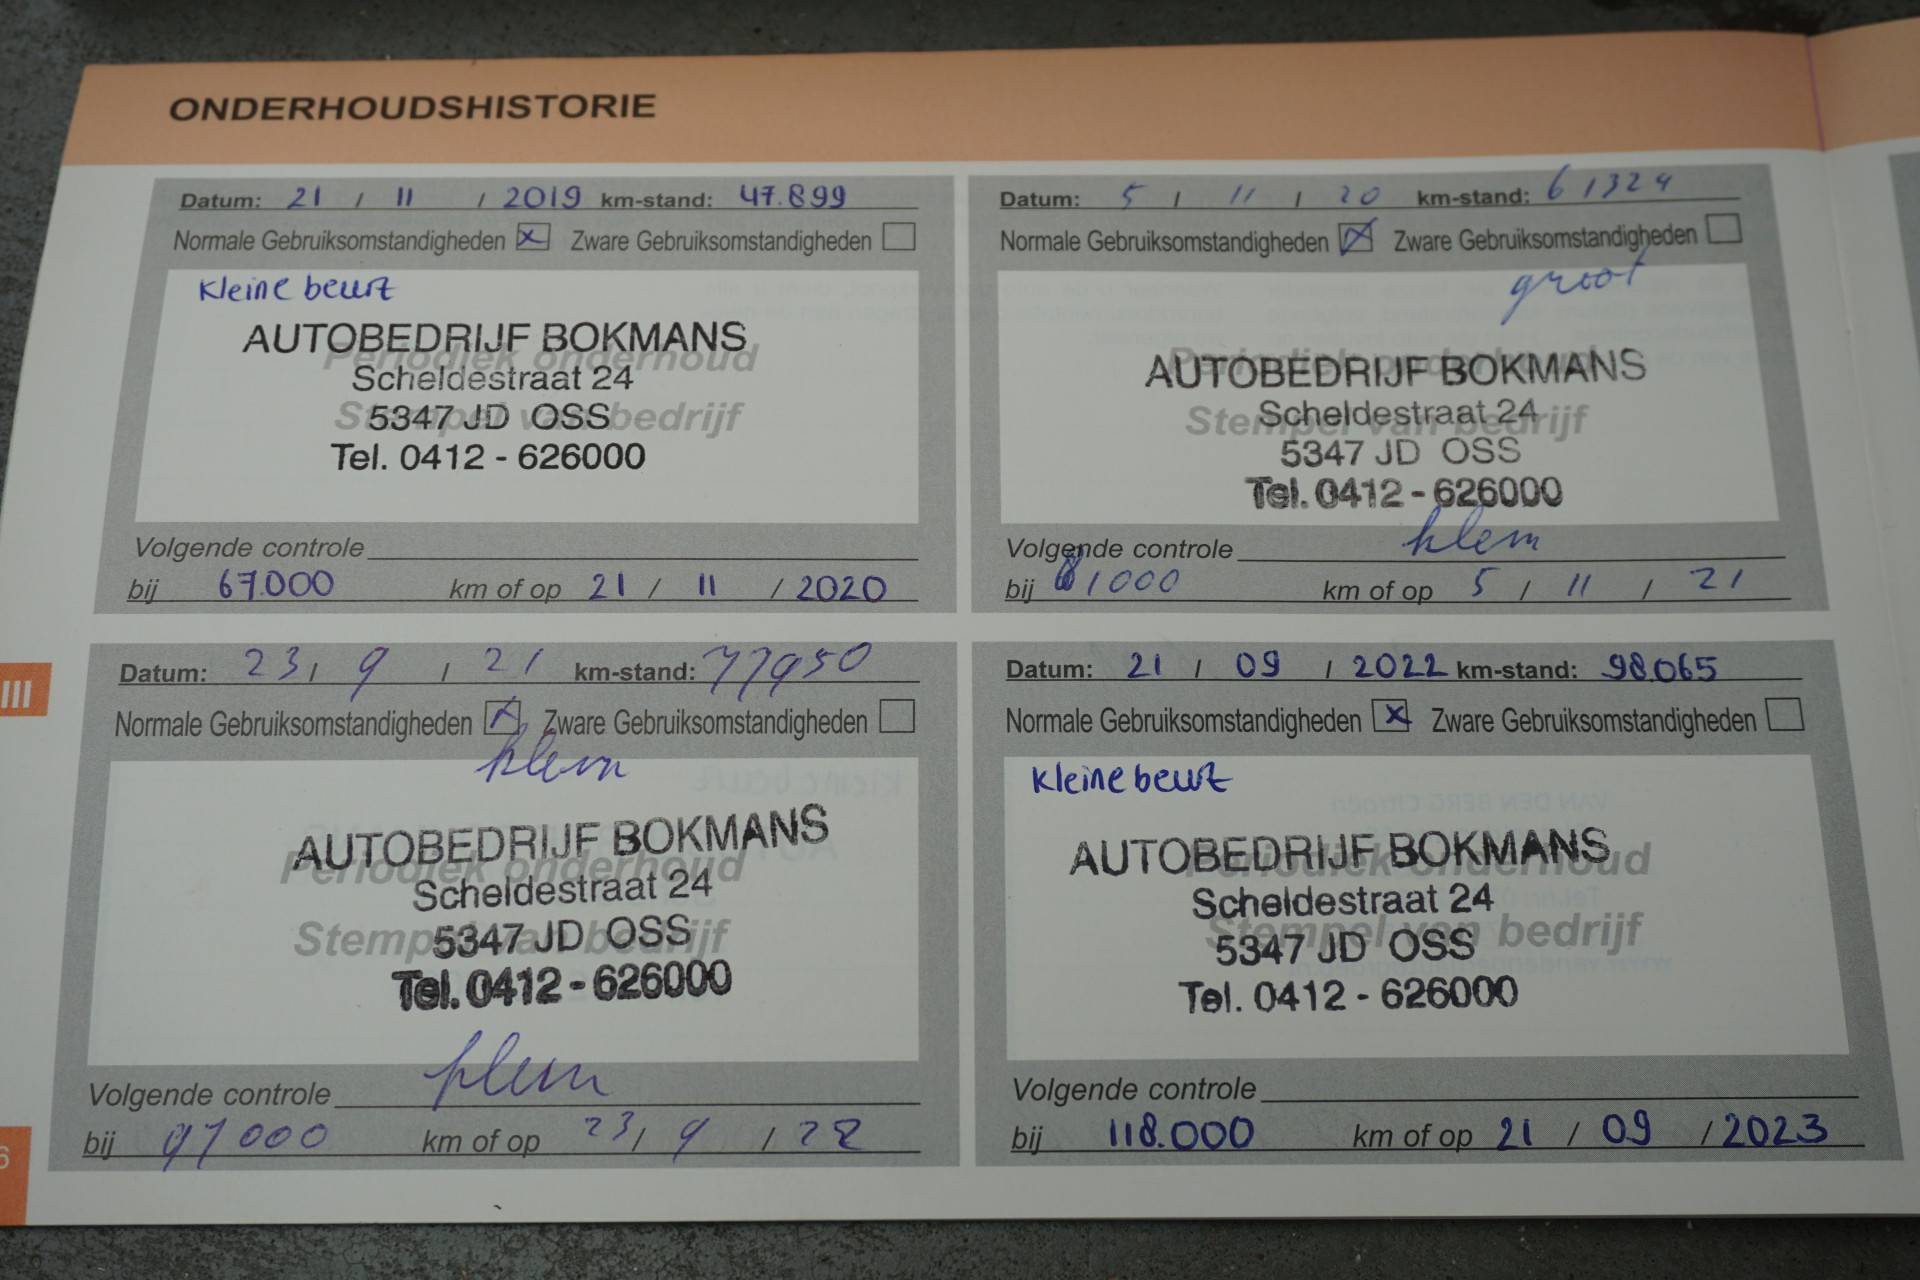 ONDERHOUDSHISTORIE
Datum: 21 / 11 / 2019 km-stand: 47.899
Normale Gebruiksomstandigheden x Zware Gebruiksomstandigheden
kleine beurt
AUTOBEDRIJF BOKMANS
Periodiek onderhoud
Scheldestraat 24
Stempel van bedrijf
5347 JD OSS
Tel. 0412 - 626000
Volgende controle
bij 67.000 km of op 21 / 11 / 2020
Datum: 5 / 11 / 20 km-stand: 61324
Normale Gebruiksomstandigheden x Zware Gebruiksomstandigheden
groot
AUTOBEDRIJF BOKMANS
Periodiek onderhoud
Scheldestraat 24
Stempel van bedrijf
5347 JD OSS
Tel. 0412 - 626000
Volgende controle klein
bij 81000 km of op 5 / 11 / 21
Datum: 23 / 9 / 21 km-stand: 77950
Normale Gebruiksomstandigheden x Zware Gebruiksomstandigheden
klein
AUTOBEDRIJF BOKMANS
Periodiek onderhoud
Scheldestraat 24
Stempel van bedrijf
5347 JD OSS
Tel. 0412 - 626000
Volgende controle klein
bij 97000 km of op 23 / 9 / 22
Datum: 21 / 09 / 2022 km-stand: 98.065
Normale Gebruiksomstandigheden x Zware Gebruiksomstandigheden
kleine beurt
AUTOBEDRIJF BOKMANS
Periodiek onderhoud
Scheldestraat 24
Stempel van bedrijf
5347 JD OSS
Tel. 0412 - 626000
Volgende controle
bij 118.000 km of op 21 / 09 / 2023
III
6